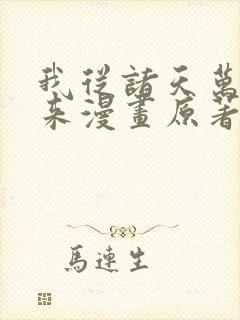 我從諸天萬
來漫畫原著
馬連生